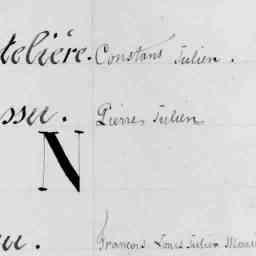 teliére. Constant Julien.
ssu. Pierre Julien
N
u. François Louis Julien